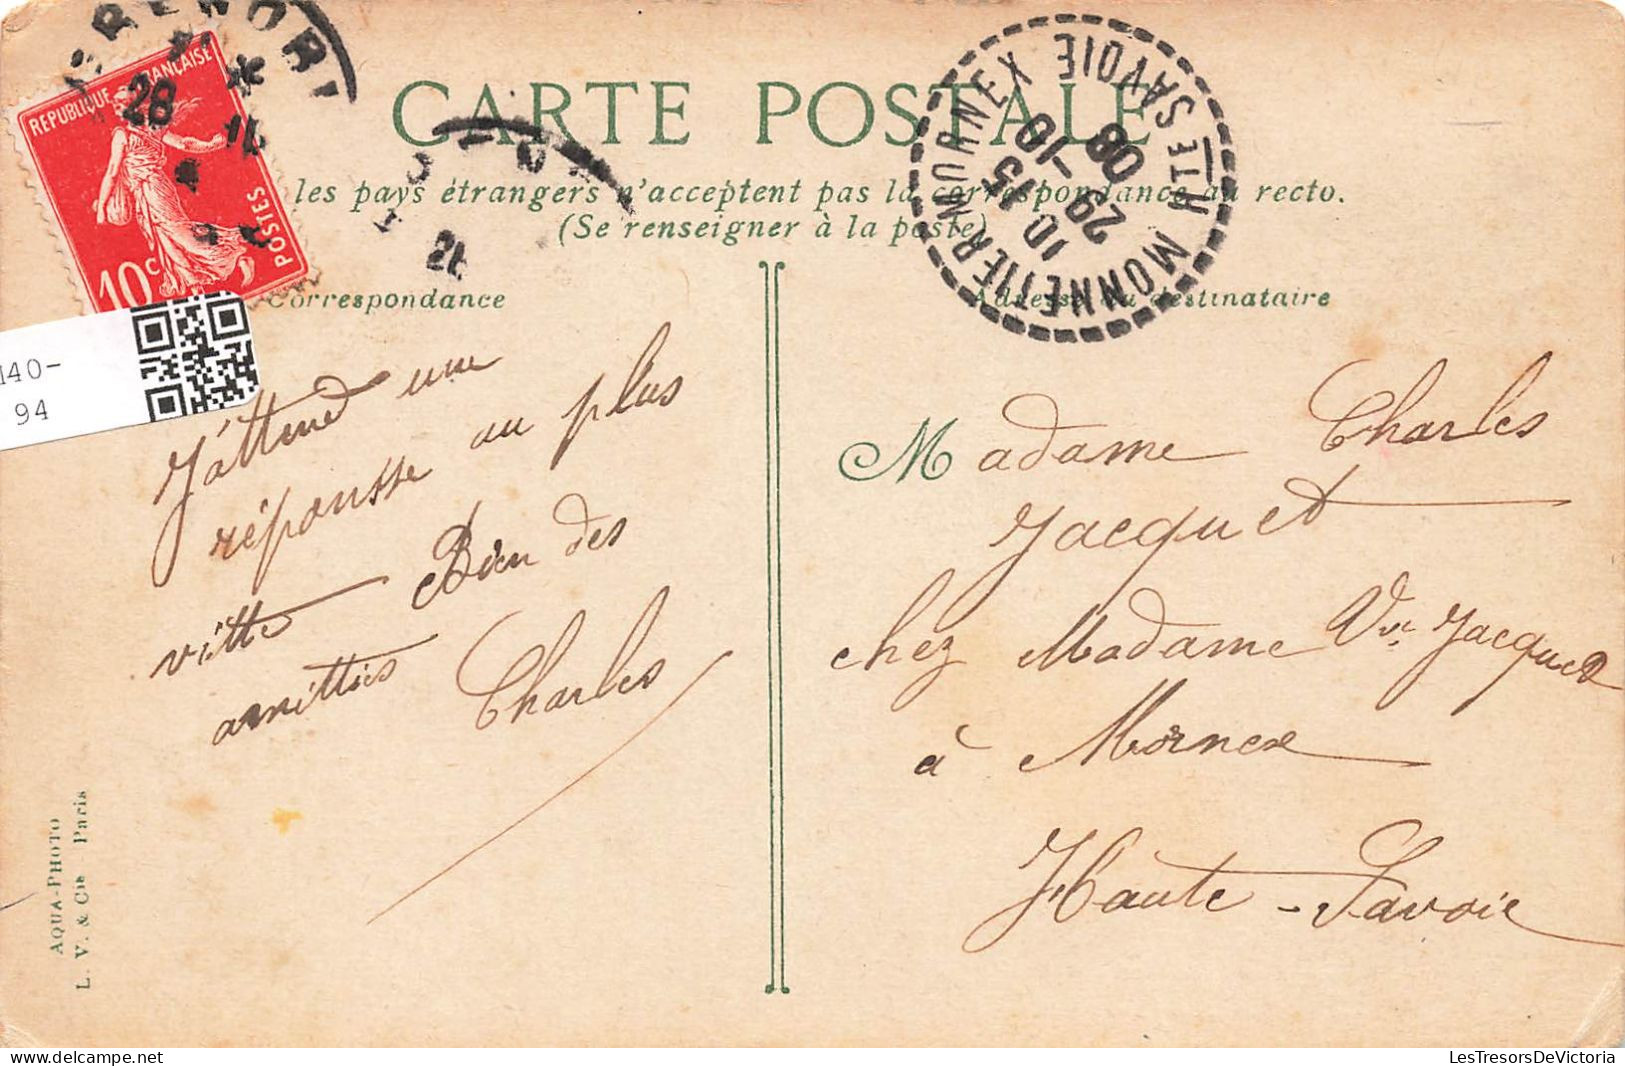 REPUBLIQUE FRANÇAISE
10c POSTES
28
CARTE POSTALE
les pays étrangers n'acceptent pas la correspondance au recto.
(Se renseigner à la poste)
MONNETIER MORNEX
HTE SAVOIE
10 15
29 -10
08
Correspondance
Adresse du destinataire
140-
94
J'attend une
réponsse au plus
vitte Bien des
amitties Charles
Madame Charles
Jacquet
chez Madame Vve Jacquet
à Mornex
Haute-Savoie
AQUA-PHOTO
L. V. & Cie Paris
LesTresorsDeVictoria